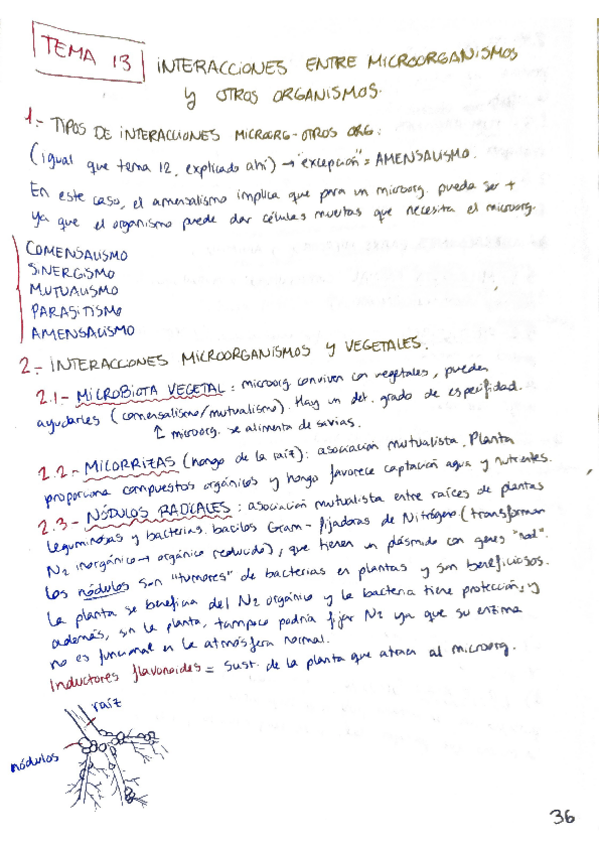 TEMA 13 INTERACCIONES ENTRE MICROORGANISMOS
y OTROS ORGANISMOS.
1.- TIPOS DE INTERACCIONES MICROORG-OTROS ORG:
(igual que tema 12, explicado ahí) → "excepción" = AMENSALISMO.
En este caso, el amensalismo implica que para un microorg. pueda ser +
ya que el organismo puede dar células muertas que necesita el microorg.
COMENSALISMO
SINERGISMO
MUTUALISMO
PARASITISMO
AMENSALISMO
2.- INTERACCIONES MICROORGANISMOS y VEGETALES.
2.1- MICROBIOTA VEGETAL: microorg. conviven con vegetales, pueden
ayudarles (comensalismo/mutualismo). Hay un det. grado de especifidad.
↑ microorg. se alimenta de savias.
2.2- MICORRIZAS (hongo de la raíz): asociación mutualista. Planta
proporciona compuestos orgánicos y hongo favorece captación agua y nutrientes.
2.3- NÓDULOS RADICALES: asociación mutualista entre raíces de plantas
leguminosas y bacterias. bacilos Gram - fijadoras de Nitrógeno (transforman
N2 inorgánico → orgánico reducido), que tienen un plásmido con genes "nod".
Los nódulos son "tumores" de bacterias en plantas y son beneficiosos.
La planta se beneficia del N2 orgánico y la bacteria tiene protección, y
además, sin la planta, tampoco podría fijar N2 ya que su enzima
no es funcional en la atmósfera normal.
Inductores flavonoides = sust. de la planta que atraen al microorg.
raíz
nódulos
36